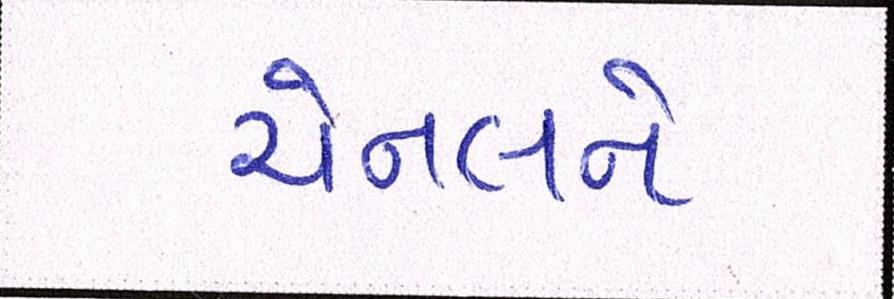 ચેનલને